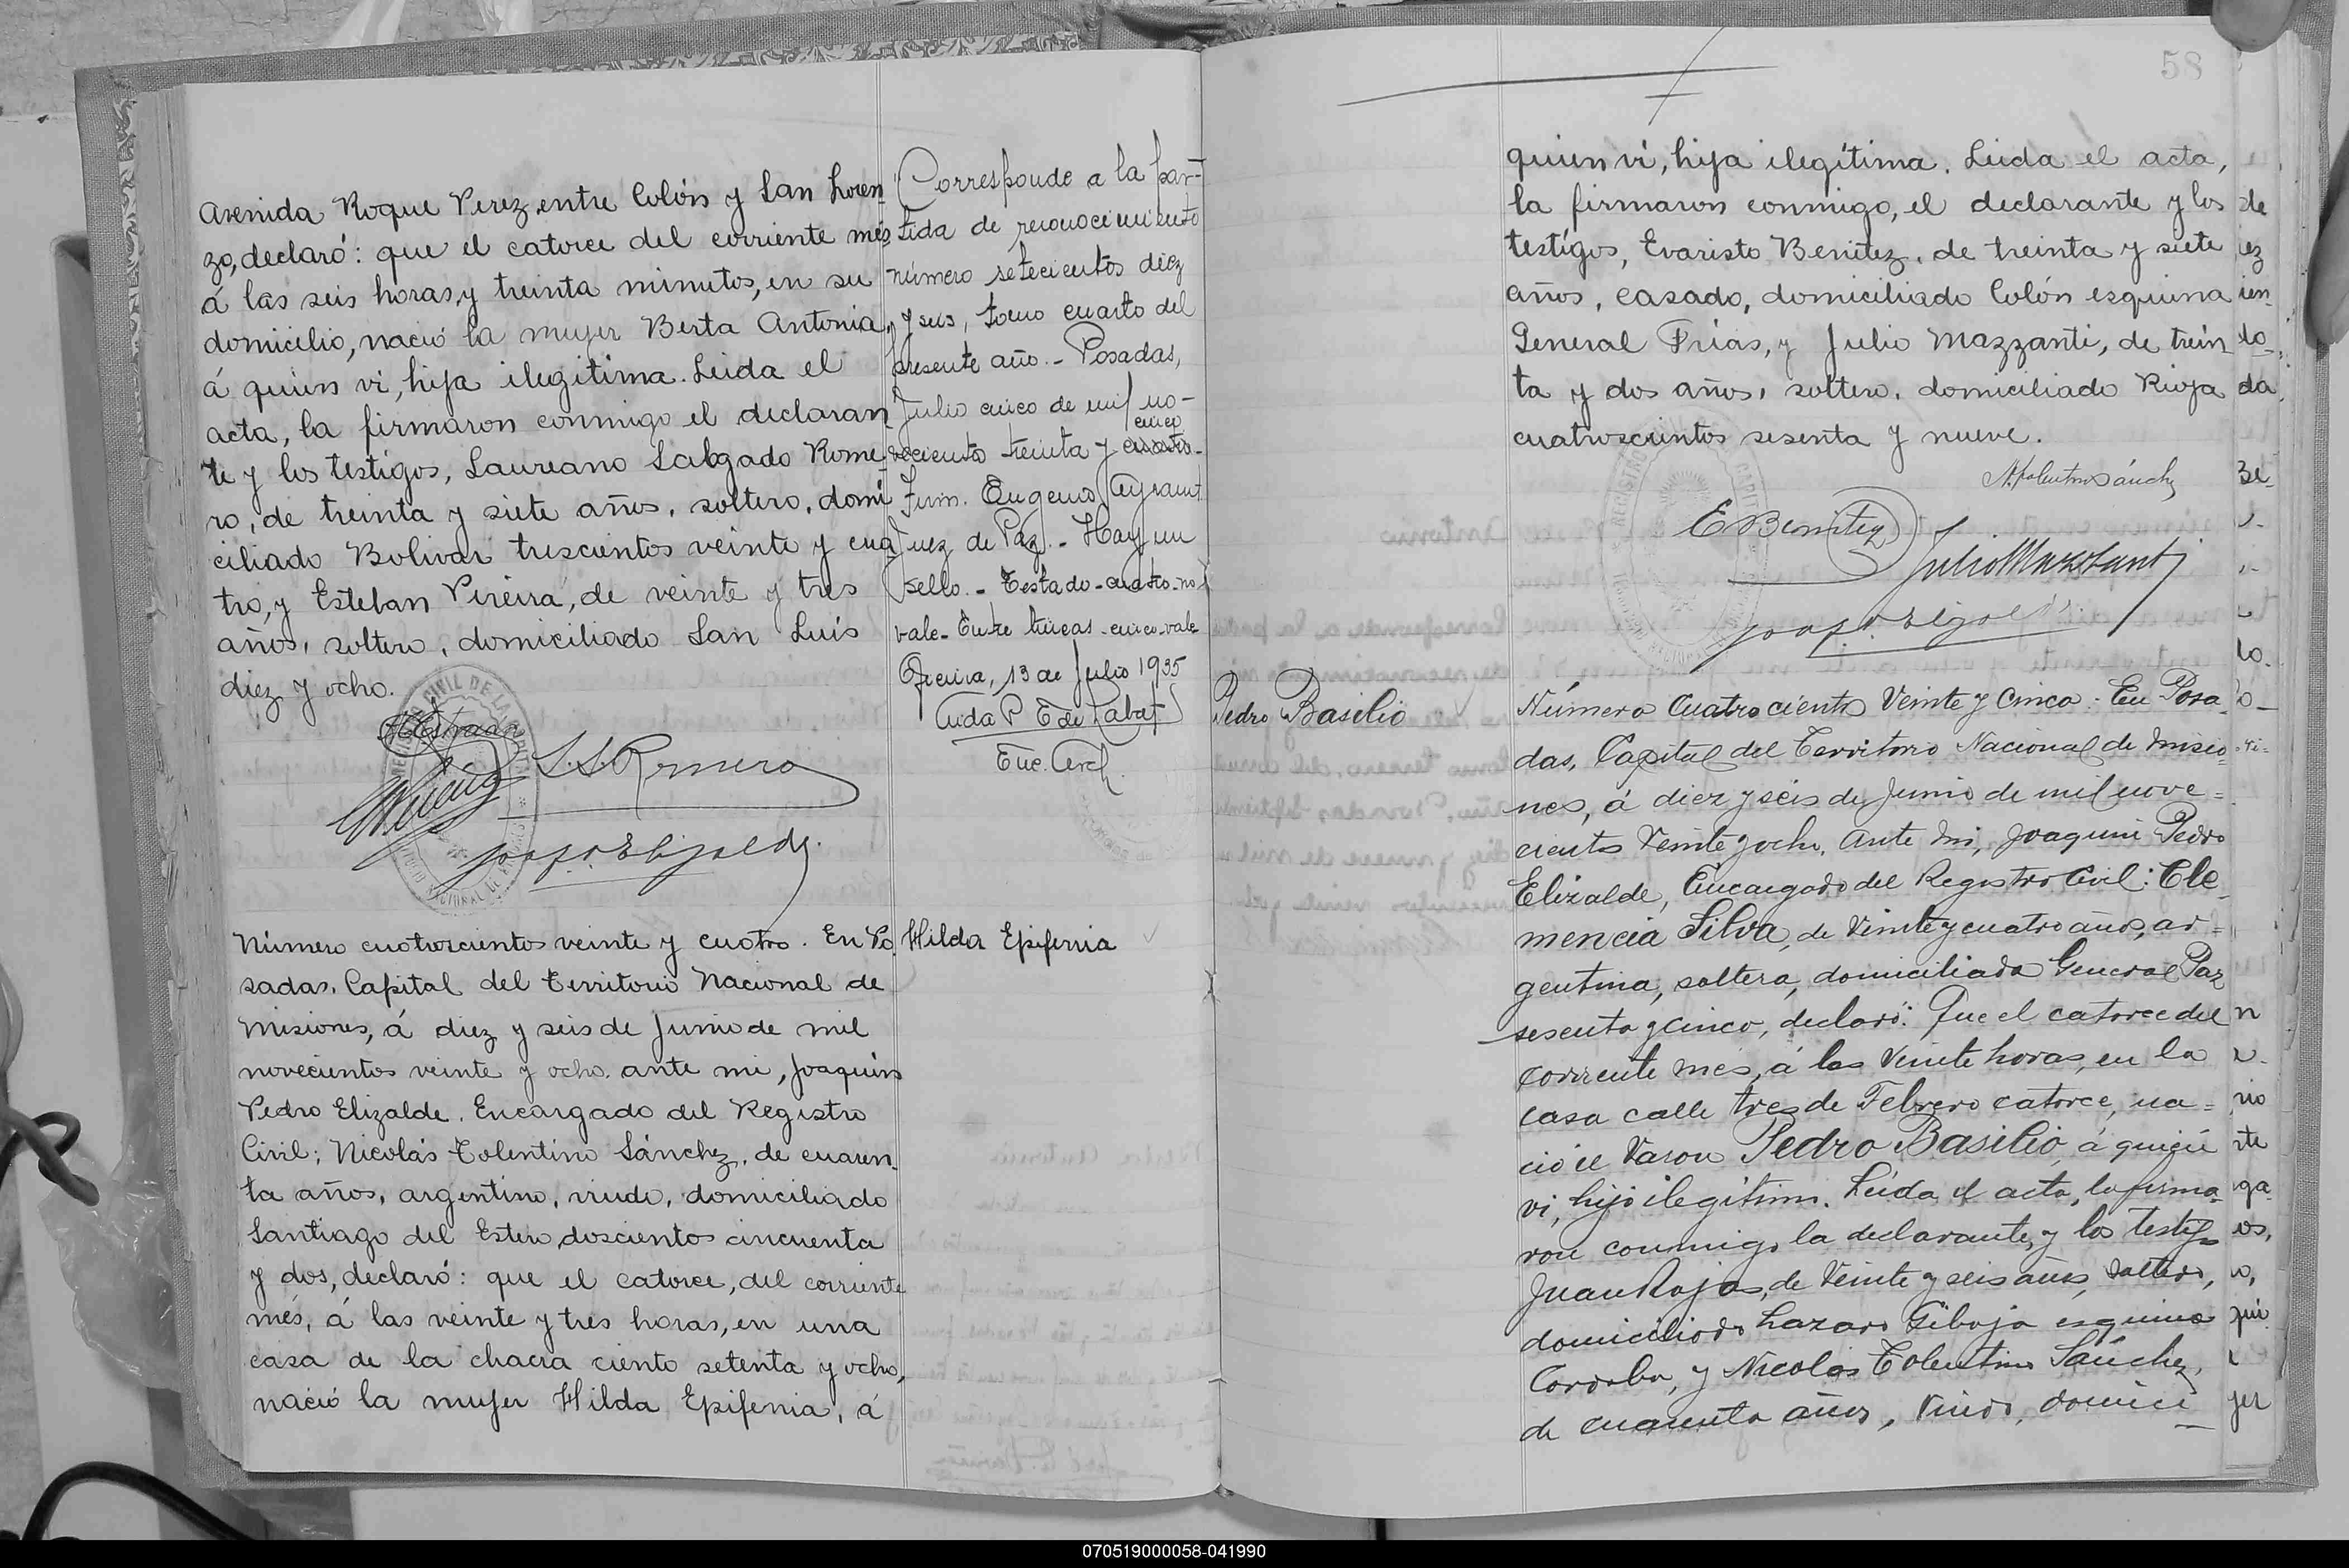 Avenida Roque Perez, entre Colón y San Loren
zo, declaró: que el catorce del corriente més
á las seis horas, y treinta minutos, en su
domicilio, nació la mujer Berta Antonia,
á quien vi, hija ilegitima. Leida el
acta, la firmaron conmigo el declaran
te y los testigos, Laureano Salgado Rome
ro, de treinta y siete años, soltero, domi
ciliado Bolivar trescientos veinte y cua
tro, y Esteban Pireira, de veinte y tres
años, soltero, domiciliado San Luis
diez y ocho.
S. S. Romero
Joaq. P. Elizalde
Número cuatroscientos veinte y cuatro. En Po
sadas, Capital del Territorio Nacional de
Misiones, á diez y seis de Junio de mil
novecientos veinte y ocho. ante mi, Joaquin
Pedro Elizalde. Encargado del Registro
Civil; Nicolás Tolentino Sánchez, de cuaren
ta años, argentino, viudo, domiciliado
Santiago del Estero doscientos cincuenta
y dos, declaró: que el catorce, del corriente
més, á las veinte y tres horas, en una
casa de la chacra ciento setenta y ocho,
nació la mujer Hilda Epifenia, á
Corresponde a la par-
tida de reconocimiento
número setecientos diez
y seis, tomo cuarto del
presente año. - Posadas,
Julio cinco de mil no-
cinco
vecientos treinta y cuatro-
Firm. Eugenio
Juez de Paz. - Hay un
sello. - Testado - cuatro - no
vale - Entre lineas - cinco - vale
Oficina, 13 de Julio 1935
Enc. Arch.
Hilda Epifenia
58
quien vi, hija ilegítima. Leida el acta,
la firmaron conmigo, el declarante y los
testigos, Evaristo Benitez, de treinta y siete
años, casado, domiciliado Colón esquina
General Frias, y Julio Mazzanti, de trein
ta y dos años, soltero, domiciliado Rioja
cuatroscientos sesenta y nueve.
N. Tolentino Sánchez
E Benitez
Julio Mazzanti
Joaq. P. Elizalde
Pedro Basilio
Número Cuatrocientos Veinte y Cinco. En Posa
das, Capital del Territorio Nacional de Misio
nes, á diez y seis de Junio de mil nove=
cientos Veinte y ocho, Ante Mi, Joaquin Pedro
Elizalde, Encargado del Registro Civil: Cle
mencia Silva, de Veinte y cuatro años, ar=
gentina, soltera, domiciliada General Paz
sesenta y cinco, declaró: Que el catorce del
corriente mes, á las Veinte horas, en la
casa calle tres de Febrero catorce, na=
ció el Varon Pedro Basilio, á quien
vi, hijo ilegitimo. Leida el acta, la firma
ron conmigo la declarante, y los testigos
Juan Rojas, de Veinte y seis años, soltero,
domiciliado Lazaro Gibaja esquina
Cordoba, y Nicolás Tolentino Sánchez,
de cuarenta años, Viudo, domici
070519000058-041990